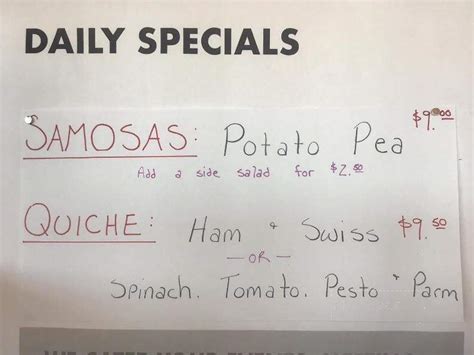 DAILY SPECIALS
SAMOSAS: Potato Pea $9.00
Add a side salad for $2.50
QUICHE: Ham & Swiss $9.50
— OR —
Spinach. Tomato. Pesto & Parm